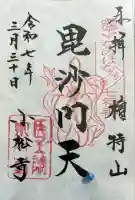 奉拝 檀特山
毘沙門天
令和七年
三月三十日
小松寺